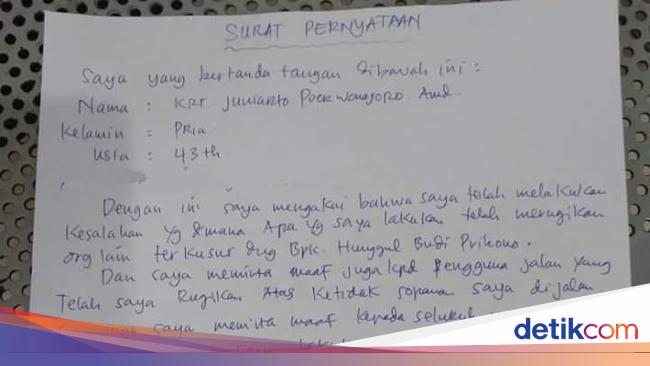 SURAT PERNYATAAN
Saya yang bertanda tangan dibawah ini :
Nama : KRT. Juniarto Poerwonagoro. Amd.
Kelamin : PRIA
Usia : 43 th
Dengan ini saya mengakui bahwa saya telah melakukan
Kesalahan Yg dmana Apa Yg saya lakukan telah merugikan
org lain terkusus dng Bpk. Hunggul Budi Prihono.
Dan saya meminta maaf juga kpd Pengguna jalan yang
Telah saya Rugikan Atas Ketidak sopanan saya dijalan.
saya meminta maaf kepada seluruh
detikcom